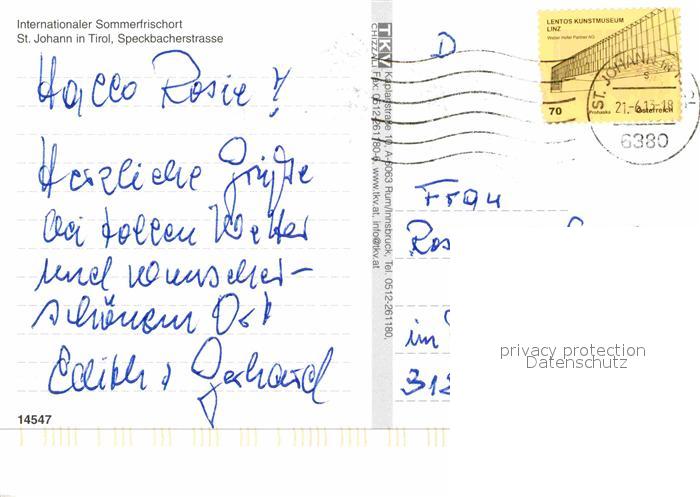 Internationaler Sommerfrischort
St. Johann in Tirol, Speckbacherstrasse
Hallo Rosie!
Herzliche Grüße
bei tollen Wetter
und wunscher-
schönem Ort
Edith + Gerhard
14547
TKV
Kaplanstraße 10, A-6063 Rum/Innsbruck, Tel. 0512-261180,
CHIZZALI Fax: 0512-261180-6 www.tkv.at, info@tkv.at
D
LENTOS KUNSTMUSEUM
LINZ
Weber Hofer Partner AG
70 Prohaska Österreich
ST. JOHANN
21.-6.13-18
6380
Frau
Ros
im
312
privacy protection
Datenschutz